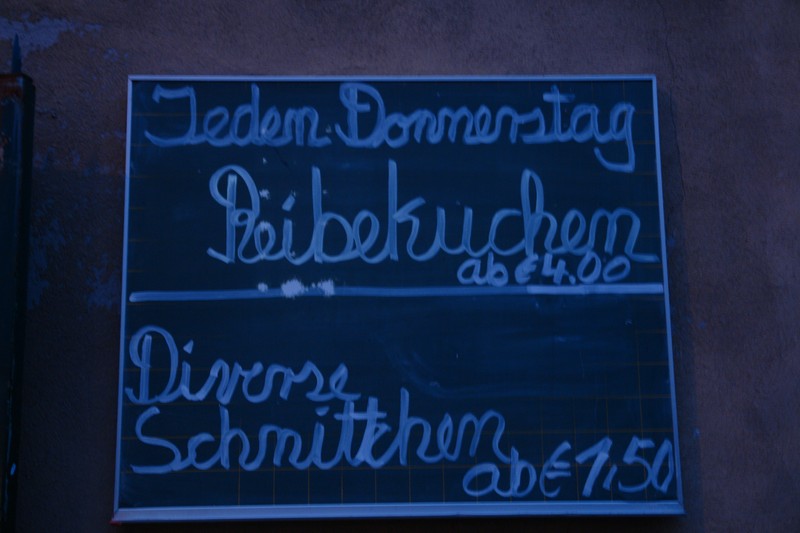 Jeden Donnerstag
Reibekuchen
ab € 4.00
Diverse
Schnittchen
ab € 1,50